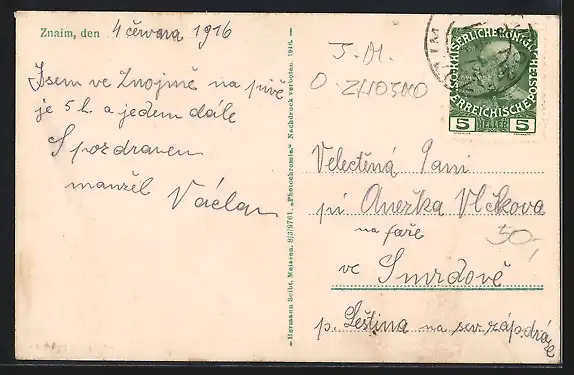 Znaim, den 4 června 1916
Jsem ve Znojmě na pivě
je 5 h. a jedem dále
S pozdravem
manžel Václav
Hermann Seibt, Meissen. 8/3/6761 „Photochromie.“ Nachdruck verboten. 1916.
J. M.
O - ZNOJMO
KAISERLICHE KÖNIGLICHE
ÖSTERREICHISCHE
5 HELLER 5
Velectěná Paní
pí Anežka Vlčkova
na faře
50,-
ve Smrdově
p. Leština na sev. záp. dráze